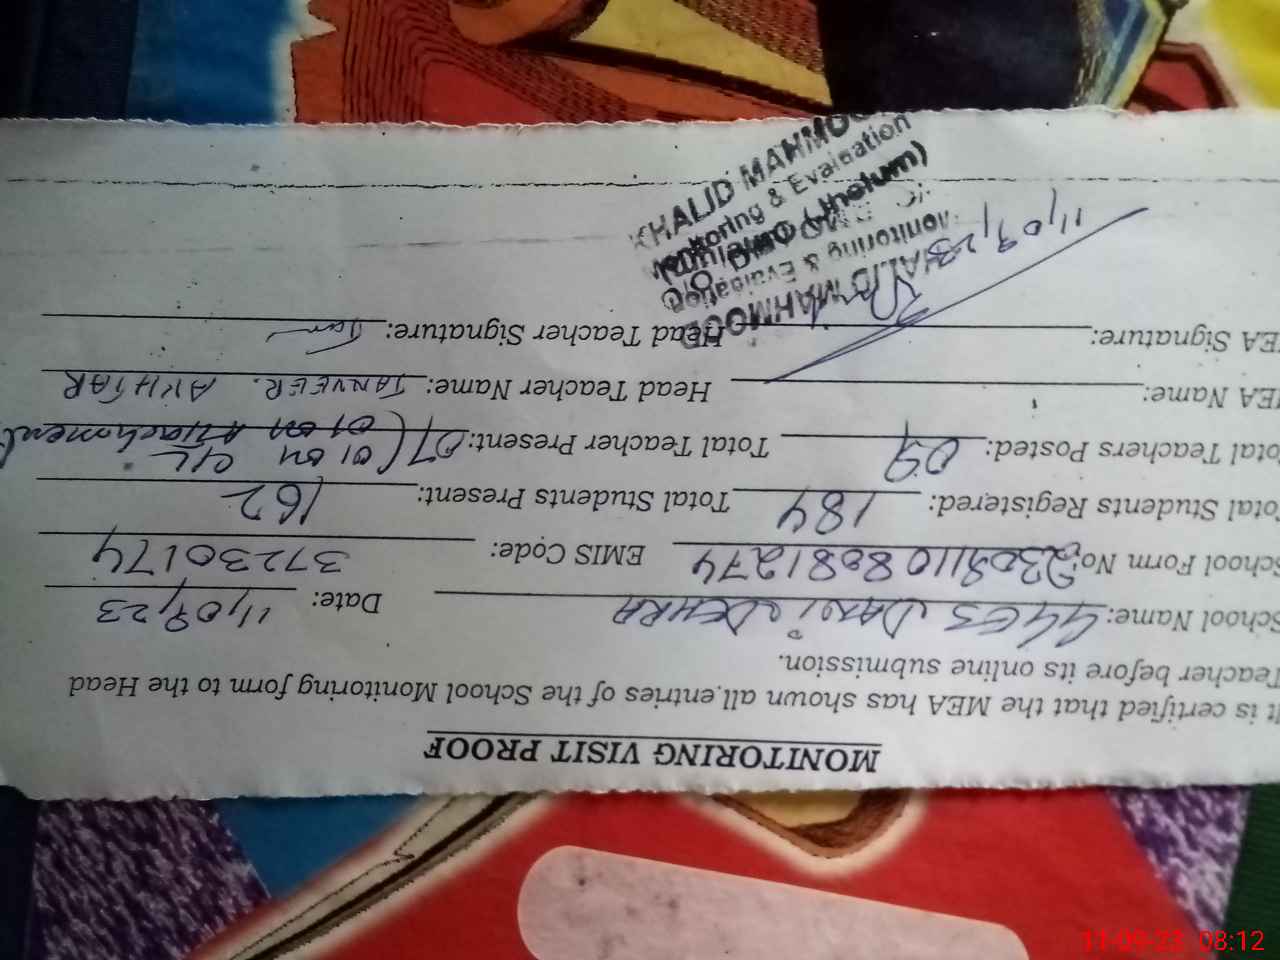 MONITORING VISIT PROOF
It is certified that the MEA has shown all entries of the School Monitoring form to the Head
Teacher before its online submission.
School Name: GGES Date: 11,09,23
School Form No: EMIS Code: 37230174
Total Students Registered: 184 Total Students Present: 162
Total Teachers Posted: 09 Total Teacher Present: 07 (01 on
01 on Attachment
MEA Name: Head Teacher Name: TANVEER AKHTAR
MEA Signature: Head Teacher Signature:
11,09,23
KHALID MAHMOOD
Monitoring & Evaluation
(Jhelum)
KHALID MAHMOOD
Monitoring & Evaluation
11-09-23 08:12